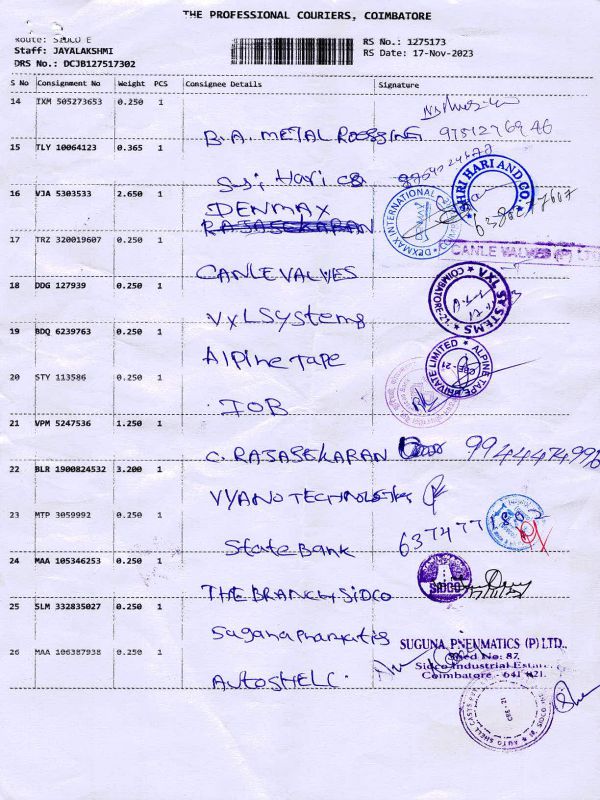 THE PROFESSIONAL COURIERS, COIMBATORE
Route: SIDCO E
Staff: JAYALAKSHMI
DRS No.: DCJB127517302
RS No.: 1275173
RS Date: 17-Nov-2023
S No Consignment No Weight PCS Consignee Details Signature
14 IXM 505273653 0.250 1
B.A. METAL 9751276946
15 TLY 10064123 0.365 1
Sri Hari CO
SHRI HARI AND CO.
16 VJA 5303533 2.650 1
DENMAX
RAJASEKARAN
DEXMAX INTERNATIONAL
17 TRZ 320019607 0.250 1
CANLE VALVES
CANLE VALVES (P) LTD
18 DDG 127939 0.250 1
VXL Systems
VXL SYSTEMS
COIMBATORE-21
19 BDQ 6239763 0.250 1
Alpine Tape
ALPINE TAPE PRIVATE LIMITED
CBE - 21
20 STY 113586 0.250 1
IOB
21 VPM 5247536 1.250 1
C. RAJASEKARAN 9944474996
22 BLR 1900824532 3.200 1
VYANO TECHNOLOGIES
23 MTP 3059992 0.250 1
State Bank 637477
24 MAA 105346253 0.250 1
THE BRANCH SIDCO
SIDCO
25 SLM 332835027 0.250 1
Suguna Pnumatics
SUGUNA PNEUMATICS (P) LTD.,
Shed No: 87,
Sidco Industrial Estate
Coimbatore - 641 021.
26 MAA 106387938 0.250 1
AUTOSHELL
AUTO SHELL CASTS
CBE - 21